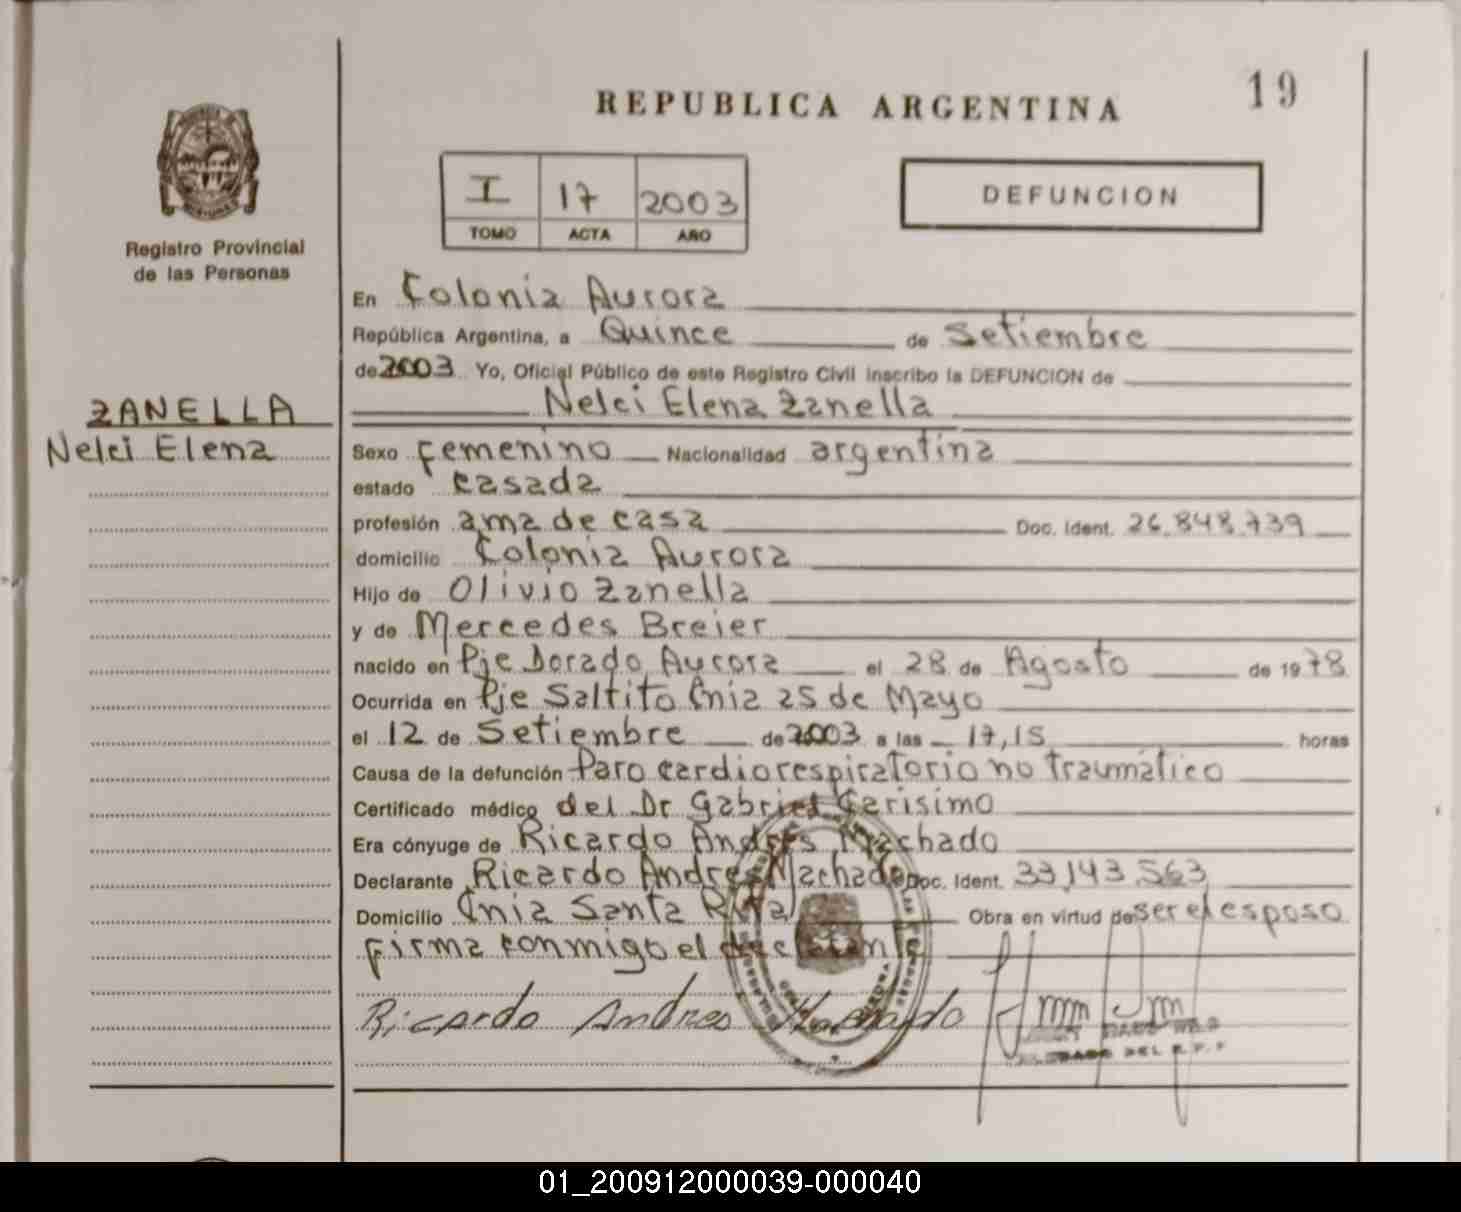 19
REPUBLICA ARGENTINA
I 17 2003
TOMO ACTA AÑO
DEFUNCION
Registro Provincial
de las Personas
ZANELLA
Nelci Elena
En Colonia Aurora
República Argentina, a Quince de Setiembre
de 2003 Yo, Oficial Público de este Registro Civil inscribo la DEFUNCION de
Nelci Elena Zanella
Sexo femenino Nacionalidad argentina
estado casada
profesión ama de casa Doc. Ident. 26.848.739
domicilio Colonia Aurora
Hijo de Olivio Zanella
y de Mercedes Breier
nacido en Pje Dorado Aurora el 28 de Agosto de 1978
Ocurrida en Pje Saltito Cnia 25 de Mayo
el 12 de Setiembre de 2003 a las 17,15 horas
Causa de la defunción Paro cardiorespiratorio no traumático
Certificado médico del Dr Gabriel Carisimo
Era cónyuge de Ricardo Andrés Machado
Declarante Ricardo Andres Machado Doc. Ident. 33,143.563
Domicilio Cnia Santa Rita Obra en virtud de ser el esposo
firma conmigo el declarante
Ricardo Andres Machado
DEL R.P.P
01_200912000039-000040